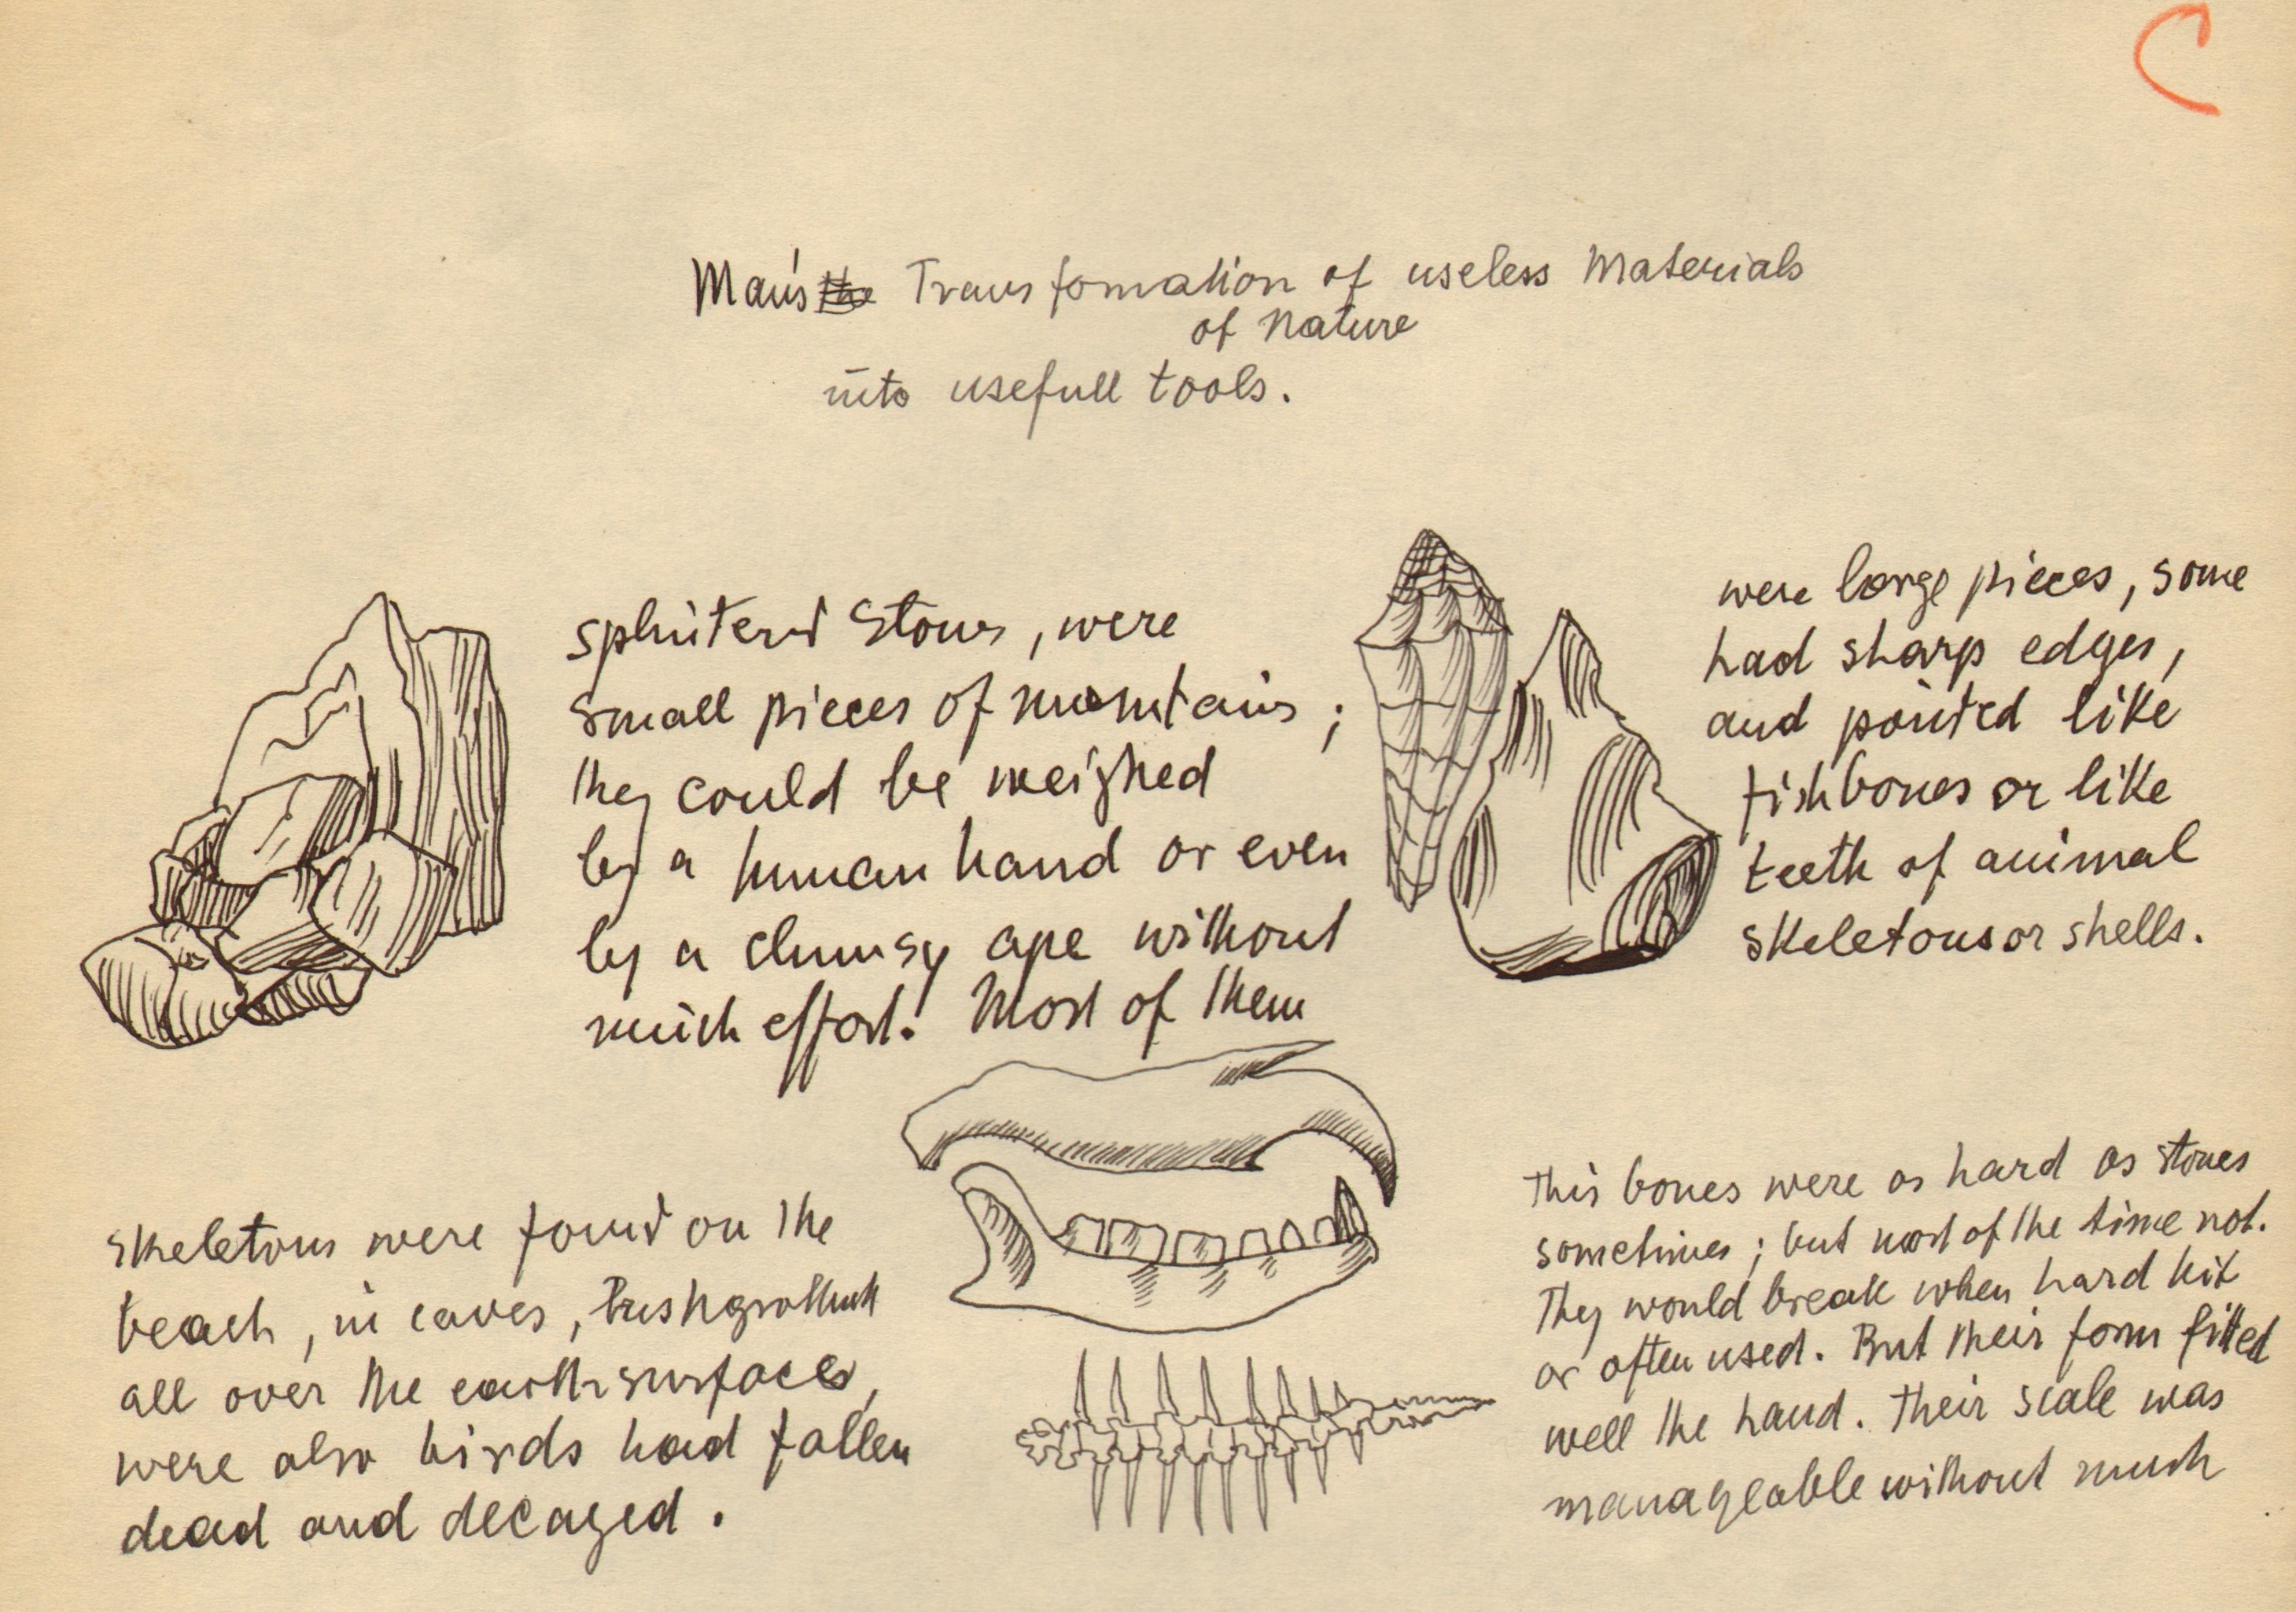 C
Man's the Transfomation of useless Materials
of Nature
into usefull tools.
splinterd Stones, were
small pieces of mountains ;
they could be weighed
by a human hand or even
by a clumsy ape without
much effort. Most of them
were large pieces, some
had sharp edges,
and pointed like
fishbones or like
teeth of animal
skeletons or shells.
skeletons were found on the
beach, in caves,
all over the earth surfaces,
were also birds had fallen
dead and decayed.
This bones were as hard as stones
sometimes ; but most of the time not.
They would break when hard hit
or often used. But their form fitted
well the hand. Their scale was
manageable without much